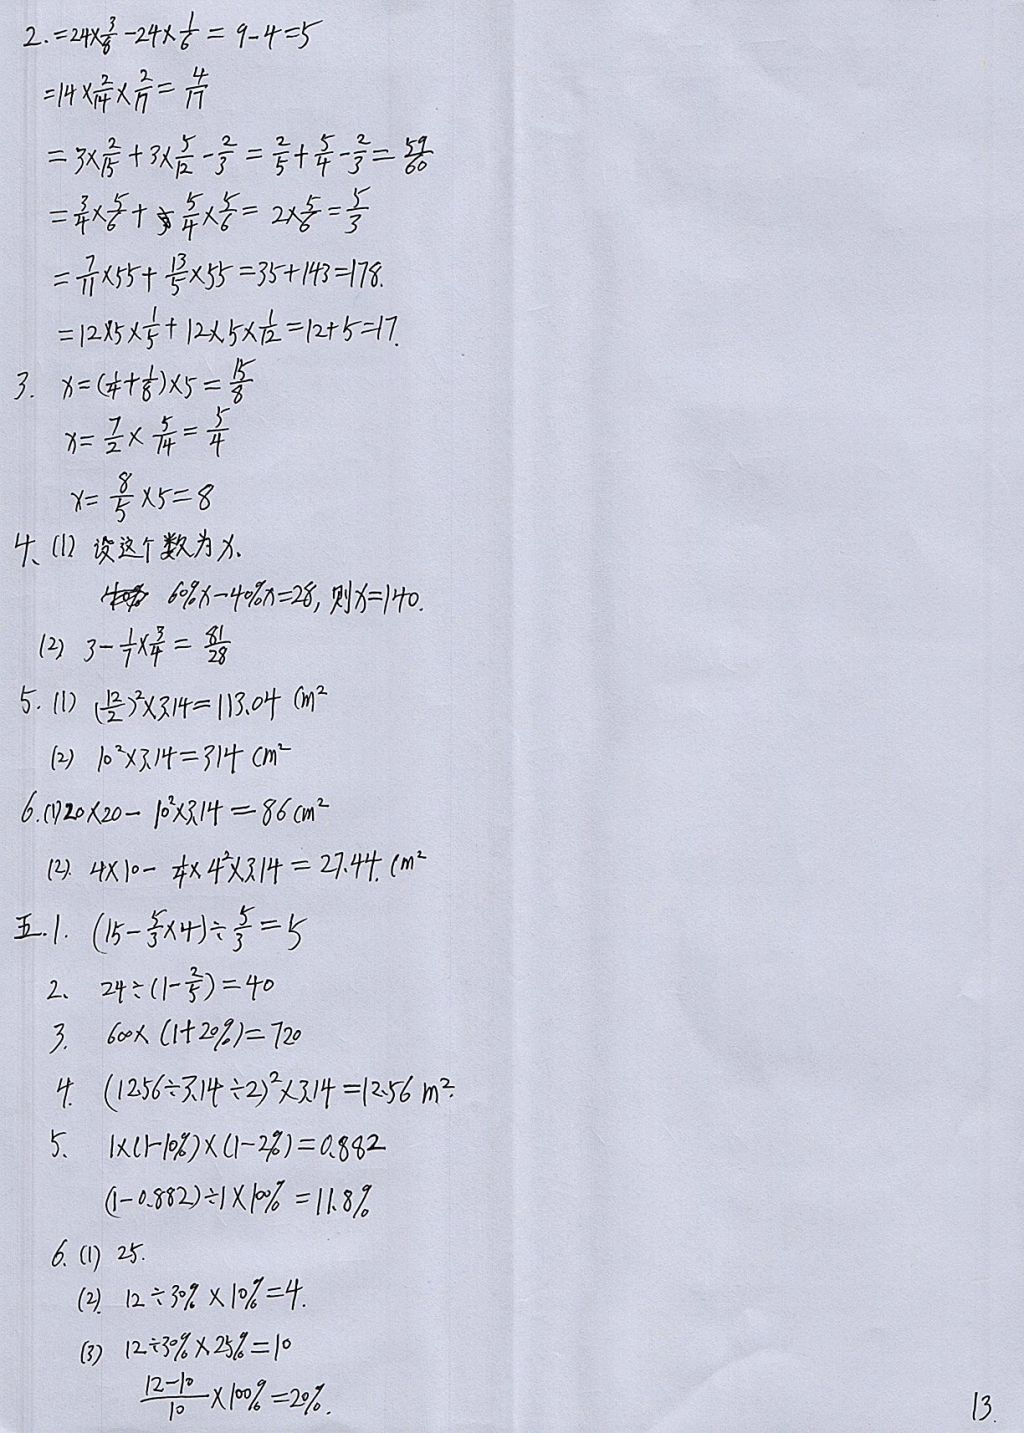 2. =24×3/8-24×1/6=9-4=5
=14×2/14×2/17=4/17
=3×2/15+3×5/12-2/3=2/5+5/4-2/3=59/60
=3/4×5/6+5/4×5/6=2×5/6=5/3
=7/11×55+13/5×55=35+143=178.
=12×5×1/5+12×5×1/12=12+5=17.
3. x=(1/4+1/8)×5=15/8
x=7/2×5/14=5/4
x=8/5×5=8
4、(1) 设这个数为x、
60%x-40%x=28, 则x=140.
(2) 3-1/7×3/4=81/28
5. (1) (12/2)²×3.14=113.04 cm²
(2) 10²×3.14=314 cm²
6.(1) 20×20-10²×3.14=86cm²
(2). 4×10-1/4×4²×3.14=27.44. cm²
五.1. (15-5/3×4)÷5/3=5
2、 24÷(1-2/5)=40
3. 600×(1+20%)=720
4. (12.56÷3.14÷2)²×3.14=12.56 m².
5、 1×(1-10%)×(1-2%)=0.882
(1-0.882)÷1×100%=11.8%
6. (1) 25.
(2). 12÷30%×10%=4.
(3) 12÷30%×25%=10
12-10/10×100%=20%.
13.